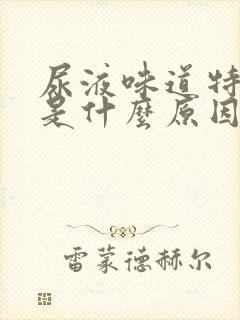 尿液味道特
是什麼原因
雷蒙德赫尔